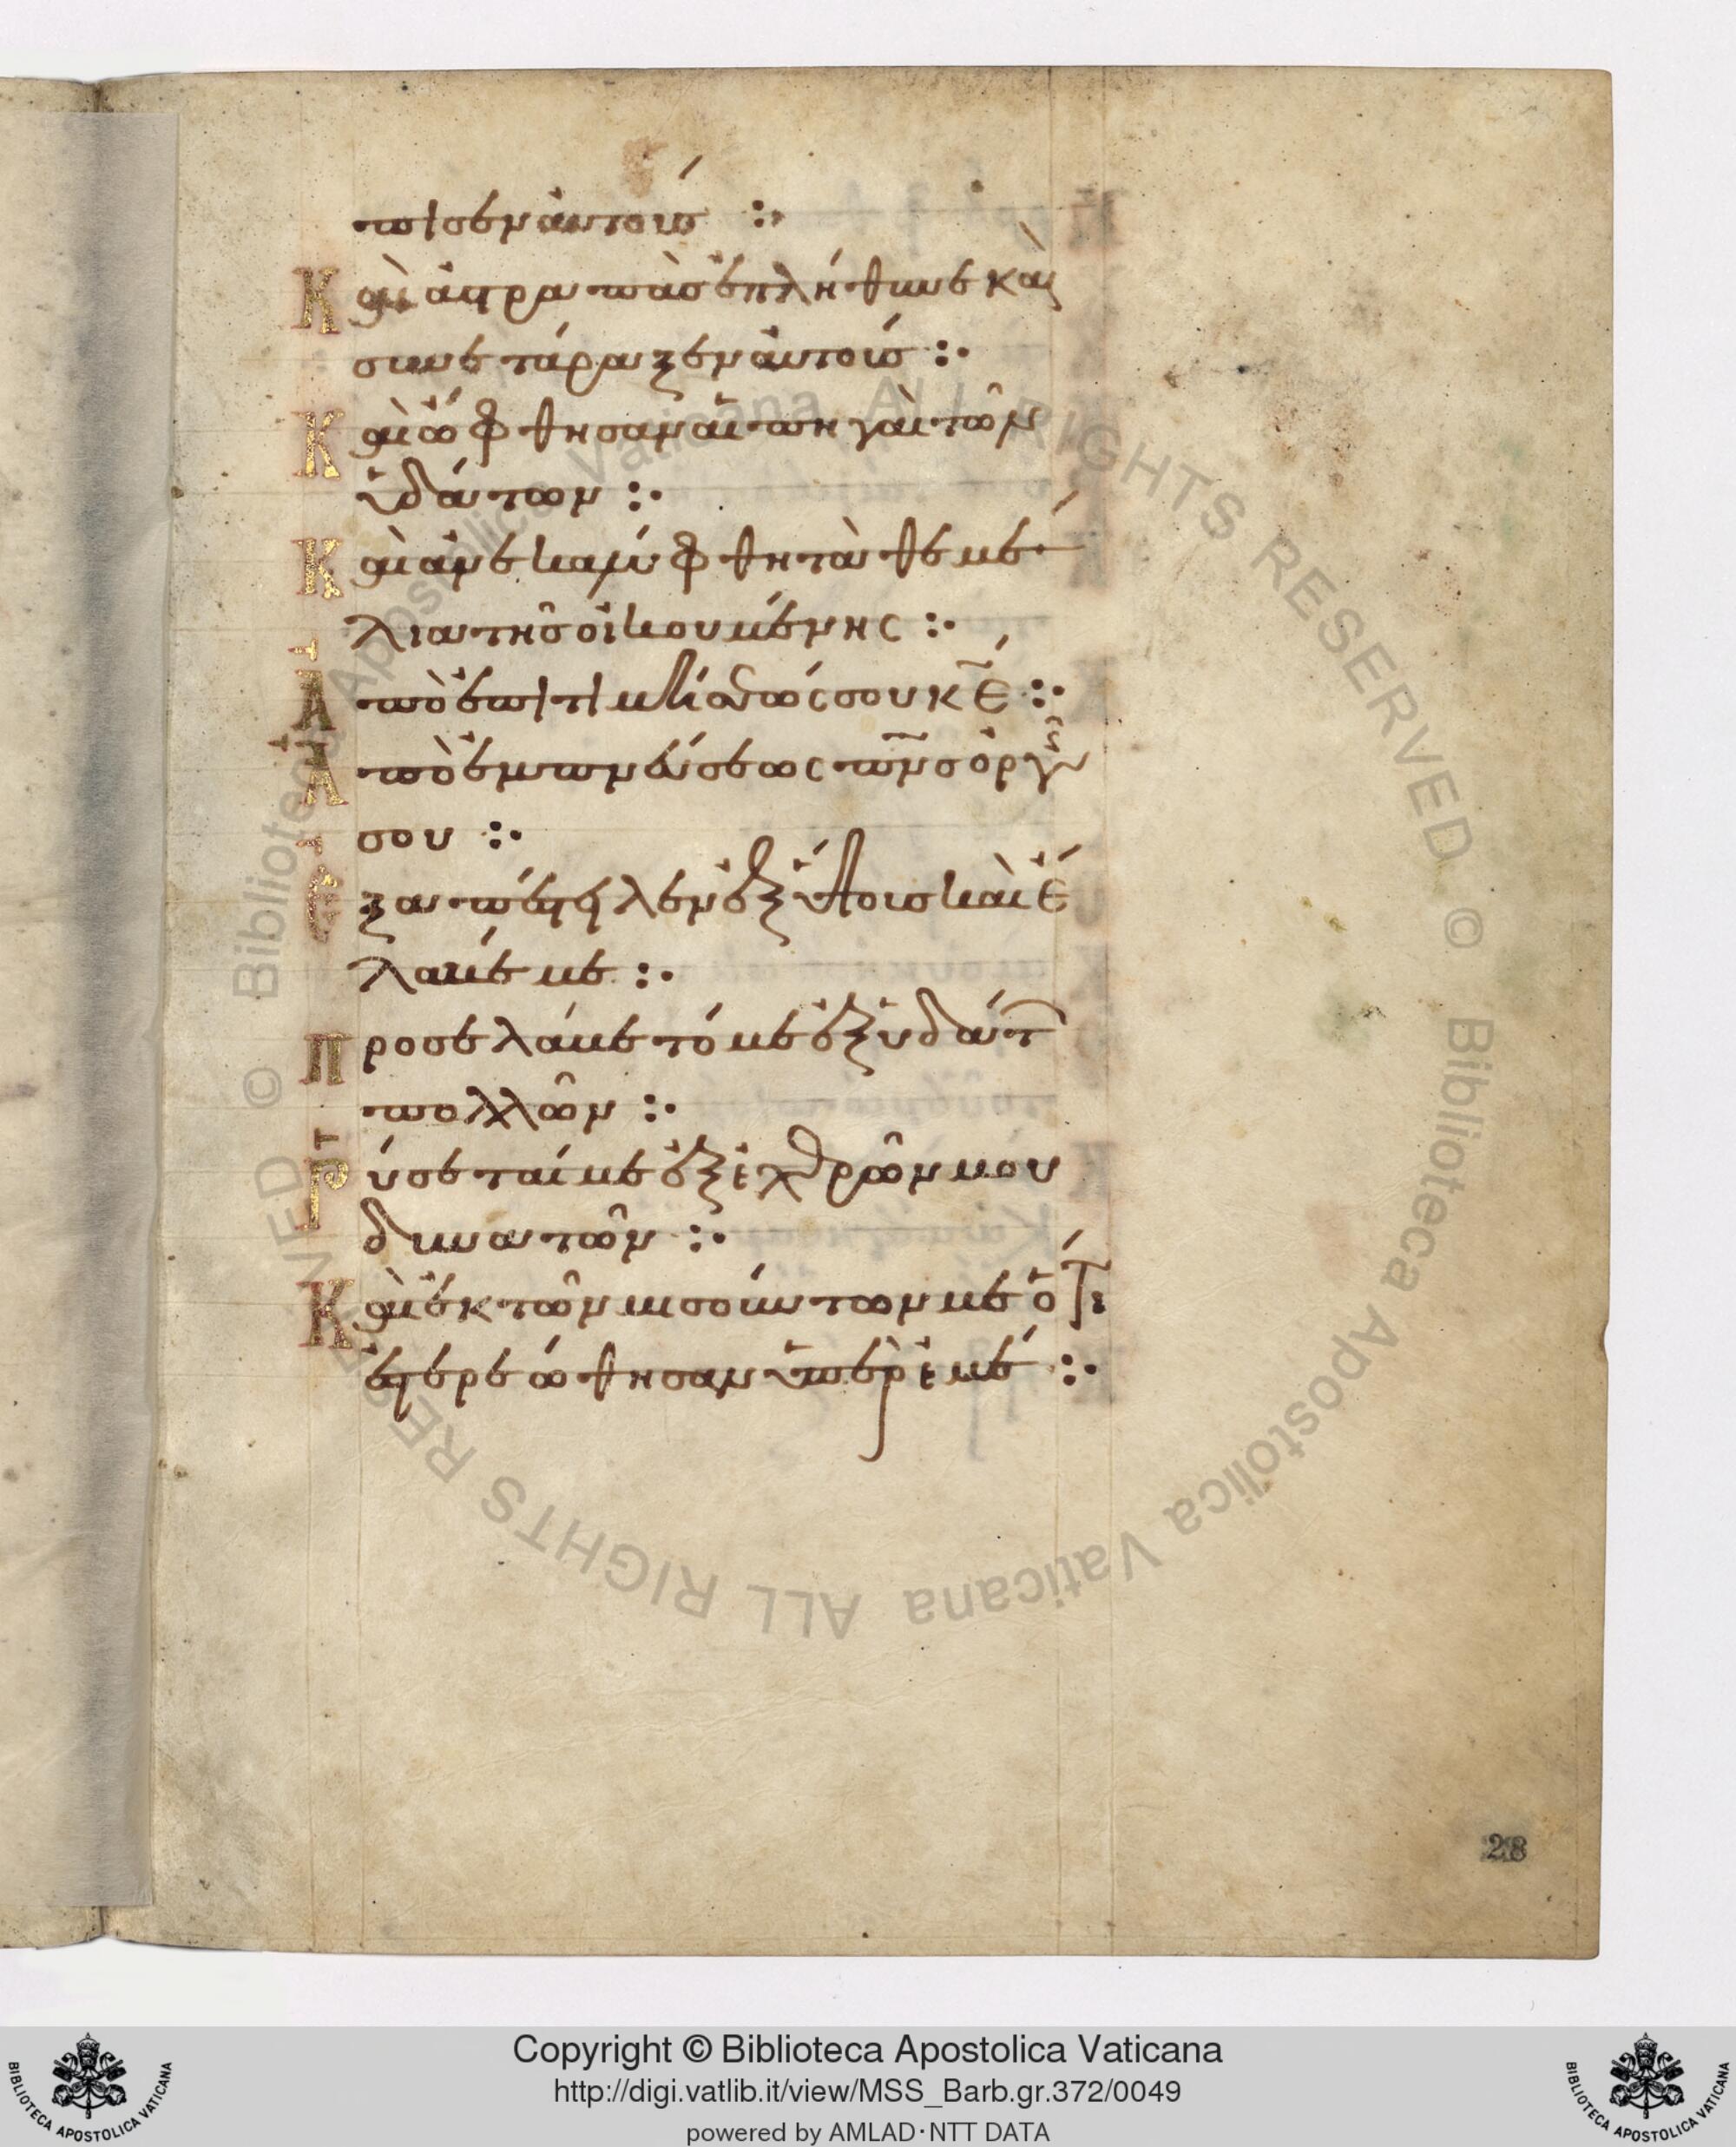 πισεν αὐτούς :·
Καὶ ἀστραπὰς ἐπλήθυνε καὶ
συνετάραξεν αὐτούς :·
Καὶ ὤφθησαν αἱ πηγαὶ τῶν
ὑδάτων :·
Καὶ ἀνεκαλύφθη τὰ θεμέ
λια τῆς οἰκουμένης :·
Ἀπὸ ἐπιτιμήσεώς σου κε :·
Ἀπὸ ἐμπνεύσεως πνς ὀργῆς
σου :·
Ἐξαπέστειλεν ἐξ ὕψους καὶ ἔ
λαβέ με :·
Προσελάβετό με ἐξ ὑδάτ
πολλῶν :·
Ῥύσεταί με ἐξ ἐχθρῶν μου
δυνατῶν :·
Καὶ ἐκ τῶν μισούντων με ὅτι
ἐστερεώθησαν ὑπὲρ ἐμέ :·
28
© Biblioteca Apostolica Vaticana ALL RIGHTS RESERVED © Biblioteca Apostolica Vaticana ALL RIGHTS RESERVED
Copyright © Biblioteca Apostolica Vaticana
http://digi.vatlib.it/view/MSS_Barb.gr.372/0049
powered by AMLAD·NTT DATA
BIBLIOTECA APOSTOLICA VATICANA
BIBLIOTECA APOSTOLICA VATICANA